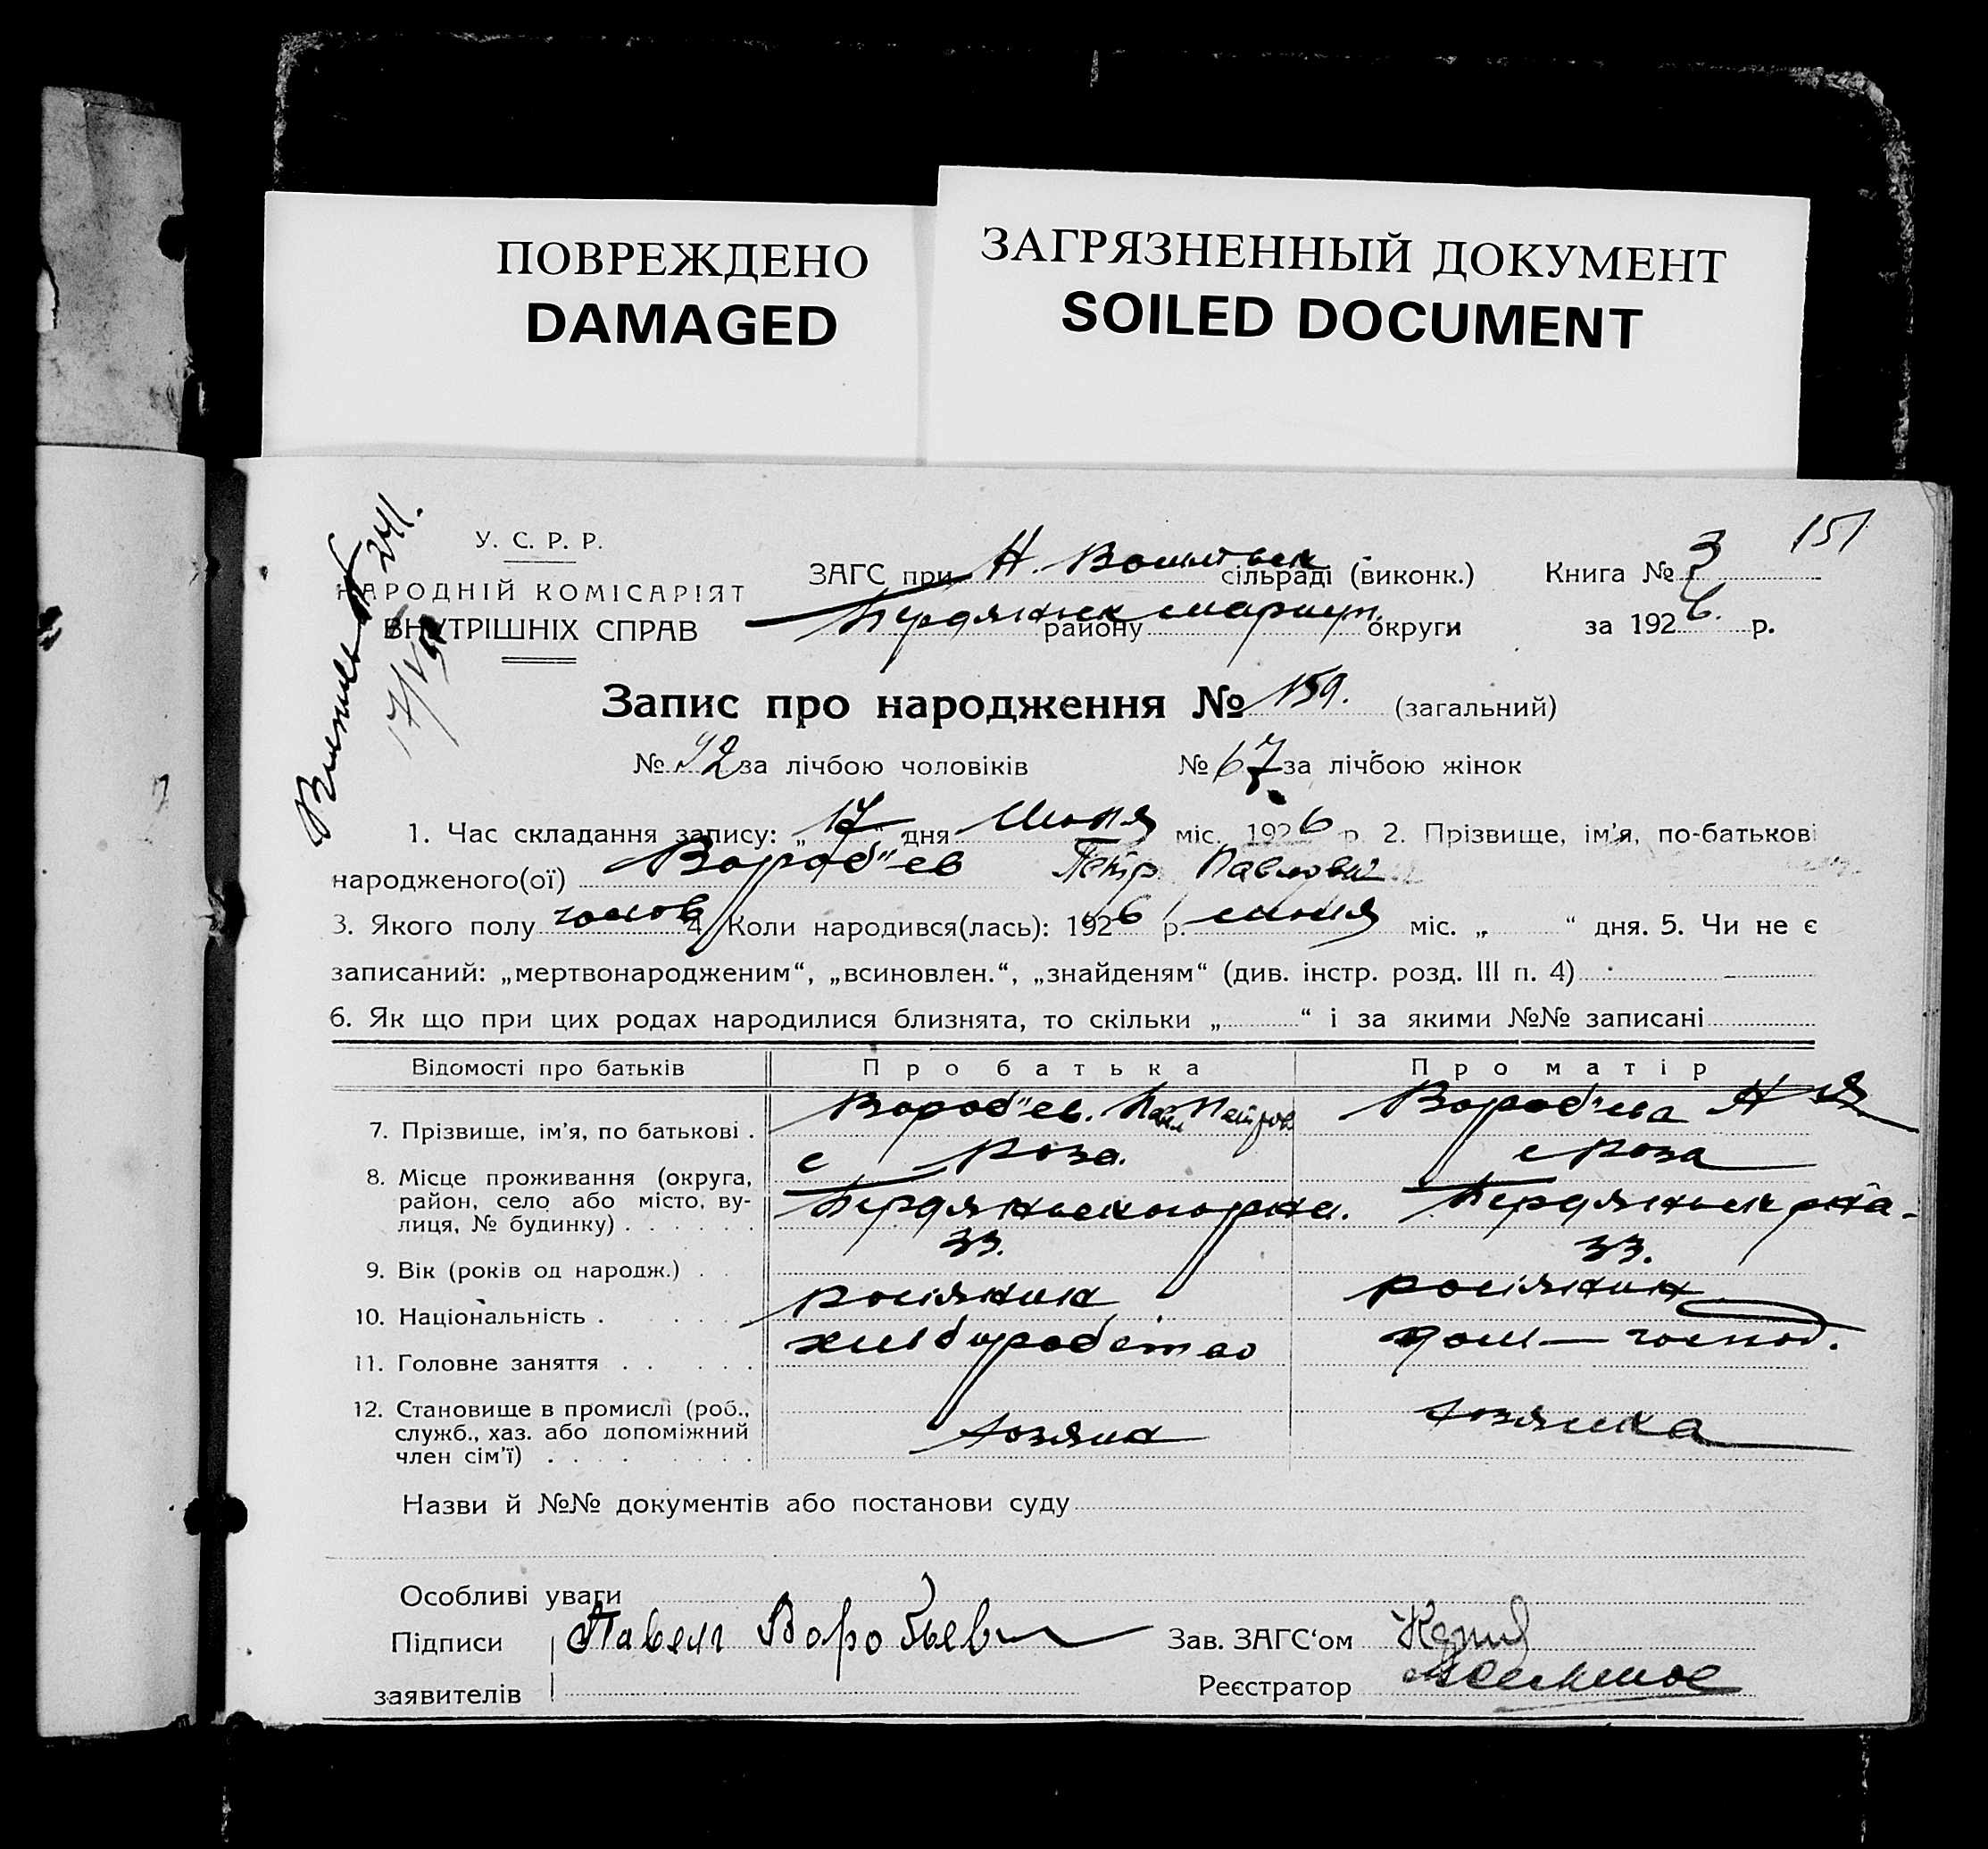 ПОВРЕЖДЕНО
DAMAGED
ЗАГРЯЗНЕННЫЙ ДОКУМЕНТ
SOILED DOCUMENT
151
У. С. Р. Р.
НАРОДНІЙ КОМІСАРІЯТ
ВНУТРІШНІХ СПРАВ
ЗАГС при Н. сільраді (виконк.) Книга № 3
району округи за 1926. р.
Запис про народження № 159. (загальний)
№ 92 за лічбою чоловіків № 67 за лічбою жінок
1. Час складання запису: „17“ дня Июня міс. 1926 р. 2. Прізвище, ім'я, по-батькові
народженого(ої) Вороб"ев Петр Павлович
3. Якого полу чолов 4. Коли народився(лась): 1926 р. июня міс. „ “ дня. 5. Чи не є
записаний: „мертвонародженим“, „всиновлен.“, „знайденям“ (див. інстр. розд. III п. 4)
6. Як що при цих родах народилися близнята, то скільки „ “ і за якими №№ записані
Відомості про батьків Про батька Про матір
7. Прізвище, ім'я, по батькові . Вороб"ев. Павл Петров Вороб"ева
8. Місце проживання (округа, район, село або місто, вулиця, № будинку) с Роза. Бердянського р-на. с Роза Бердянськ р-на.
9. Вік (років од народж.) 33. 33.
10. Національність росіянин росіянин
11. Головне заняття хліборобство дом — господ.
12. Становище в промислі (роб., служб., хаз. або допоміжний член сім'ї) хозяин хозяика
Назви й №№ документів або постанови суду
Особливі уваги
Підписи Павел Воробьев Зав. ЗАГС'ом
заявителів Реєстратор